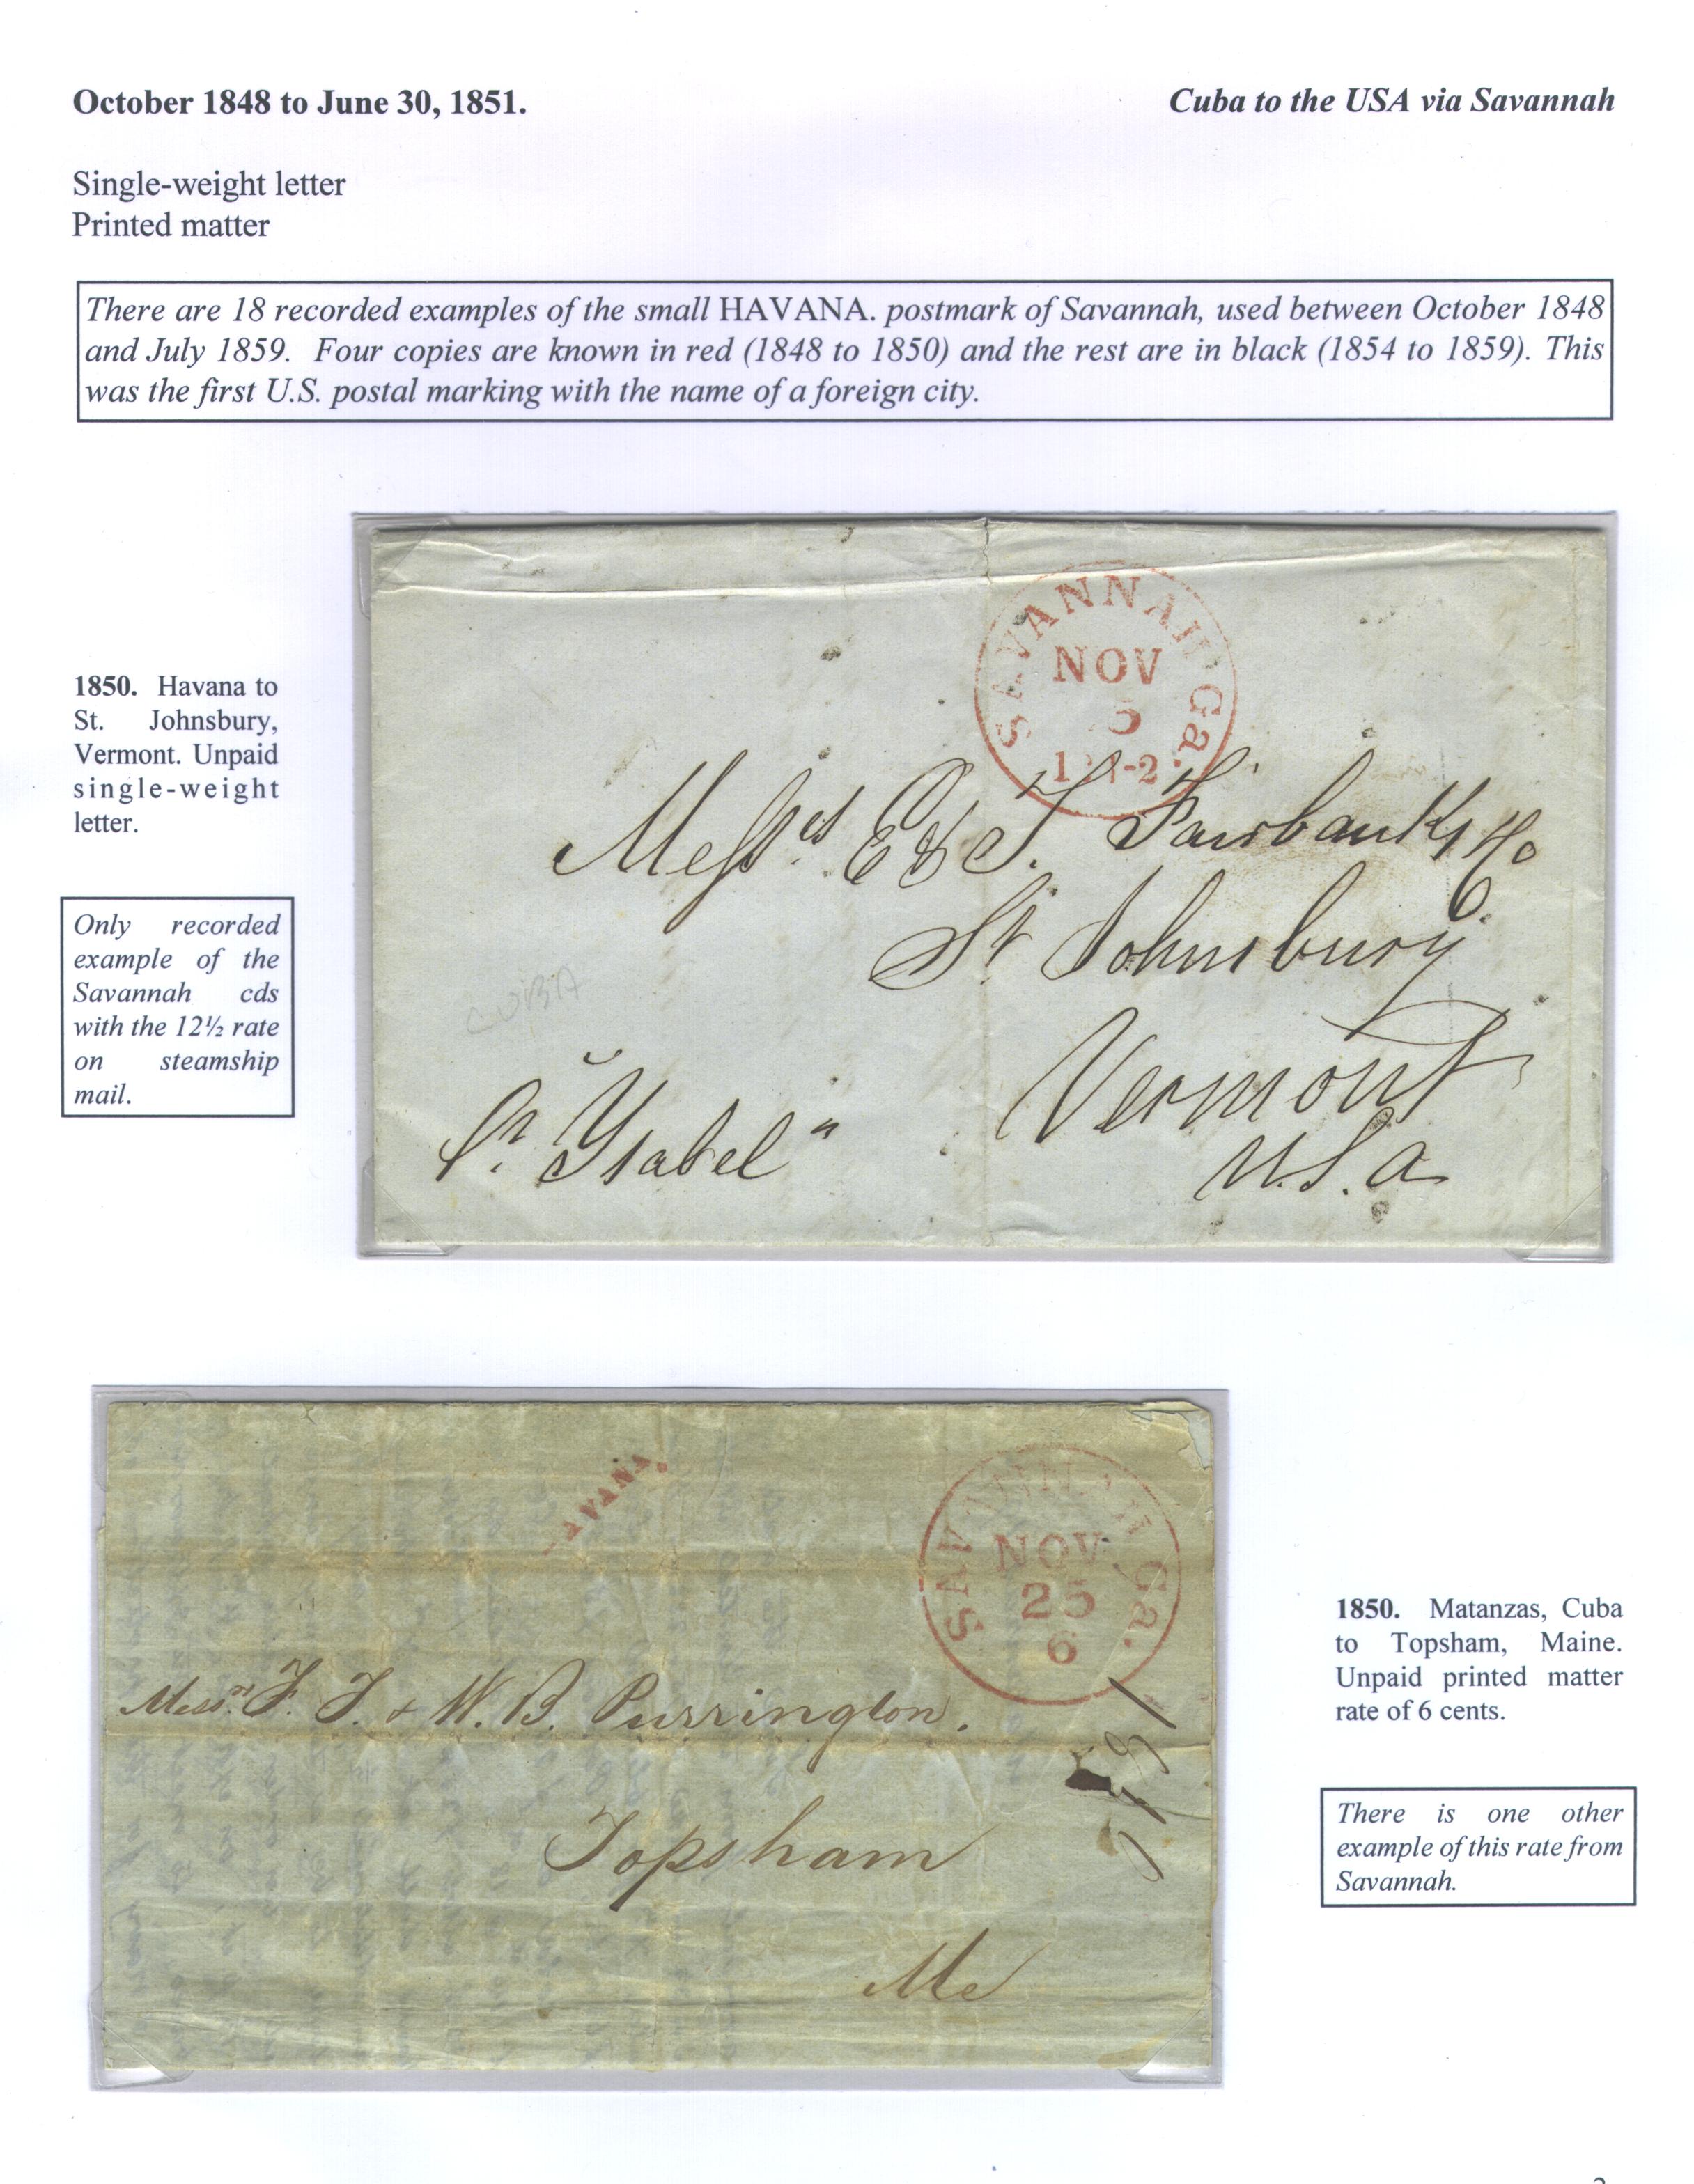 October 1848 to June 30, 1851.
Cuba to the USA via Savannah
Single-weight letter
Printed matter
There are 18 recorded examples of the small HAVANA. postmark of Savannah, used between October 1848
and July 1859. Four copies are known in red (1848 to 1850) and the rest are in black (1854 to 1859). This
was the first U.S. postal marking with the name of a foreign city.
1850. Havana to
St. Johnsbury,
Vermont. Unpaid
single-weight
letter.
Only recorded
example of the
Savannah cds
with the 12½ rate
on steamship
mail.
SAVANNAH Ga.
NOV
5
Messrs E & T. Fairbanks & Co
St Johnsbury
Vermont
U.S.a
CUBA
Pr "Ysabel"
AVANA.
SAVANNAH Ga.
NOV
25
6
Messrs. F. T. & W. B. Purrington.
Topsham
Me
1850. Matanzas, Cuba
to Topsham, Maine.
Unpaid printed matter
rate of 6 cents.
There is one other
example of this rate from
Savannah.